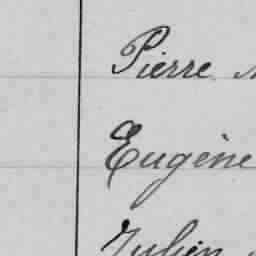 Pierre
Eugène
Julien